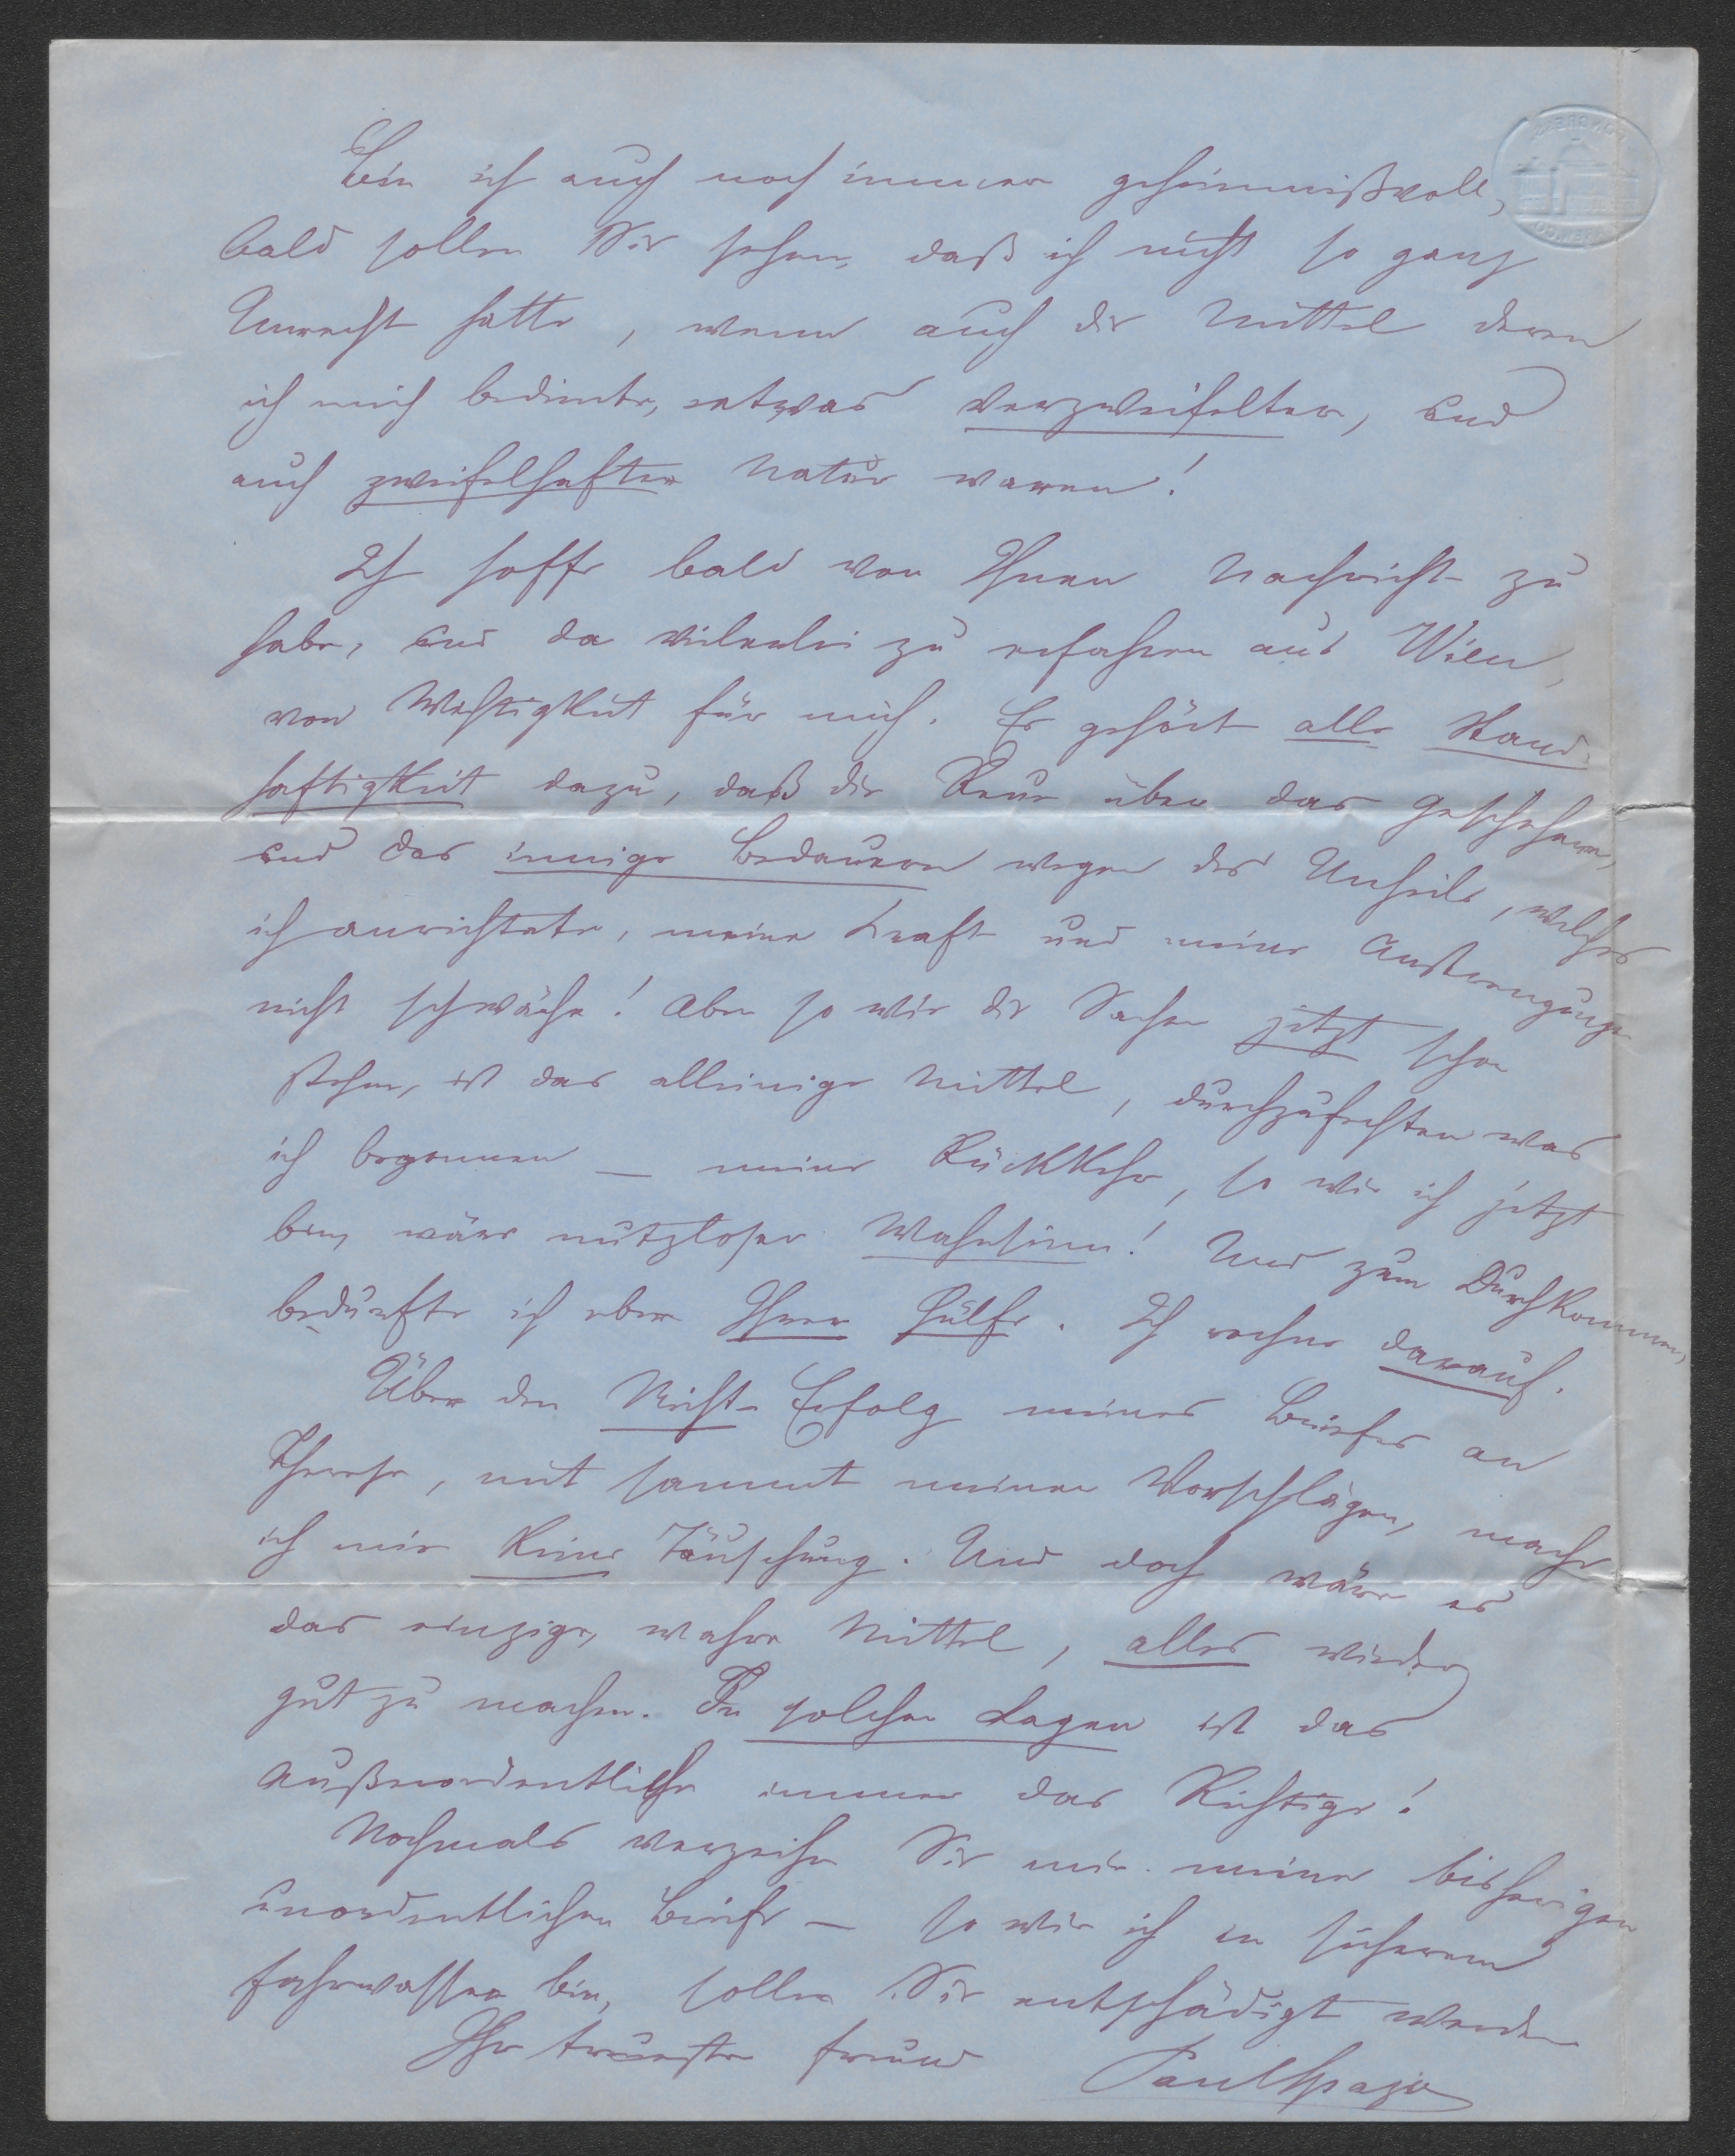 Bin ich auch noch immer geheimnißvoll,
bald sollen Sie sehen, daß ich nicht so ganz
Unrecht hatte, wenn auch die Mittel deren
ich mich bediente, etwas verzweifelter, und
auch zweifelhafter Natur waren!
Ich hoffe bald von Ihnen Nachricht zu
haben, und da vielerlei zu erfahren aus Wien,
von Wichtigkeit für mich. Es gehört alle Stand-
haftigkeit dazu, daß die Reue über das Geschehene,
und das innige Bedauern wegen des Unheils, welches
ich anrichtete, meine Kraft und meine Anstrengungen
nicht schwäche! Aber so wie die Sachen jetzt schon
stehen, ist das alleinige Mittel, durchzufechten was
ich begonnen — meine Rückkehr, so wie ich jetzt
bin, wäre nutzloser Wahnsinn! Und zum Durchkommen,
bedürfte ich eben Ihrer Hülfe. Ich rechne darauf.
Über den Nicht-Erfolg meines Briefes an
Therese, mit sammt meinen Vorschlägen, mache
ich mir keine Täuschung. Und doch wäre es
das einzige, wahre Mittel, alles wieder
gut zu machen. In solchen Lagen ist das
Außerordentliche immer das Richtige!
Nochmals verzeihen Sie mir meine bisherigen
unordentlichen Briefe — so wie ich in sicherem
Fahrwasser bin, sollen Sie entschädigt werden
Ihr treuester Freund